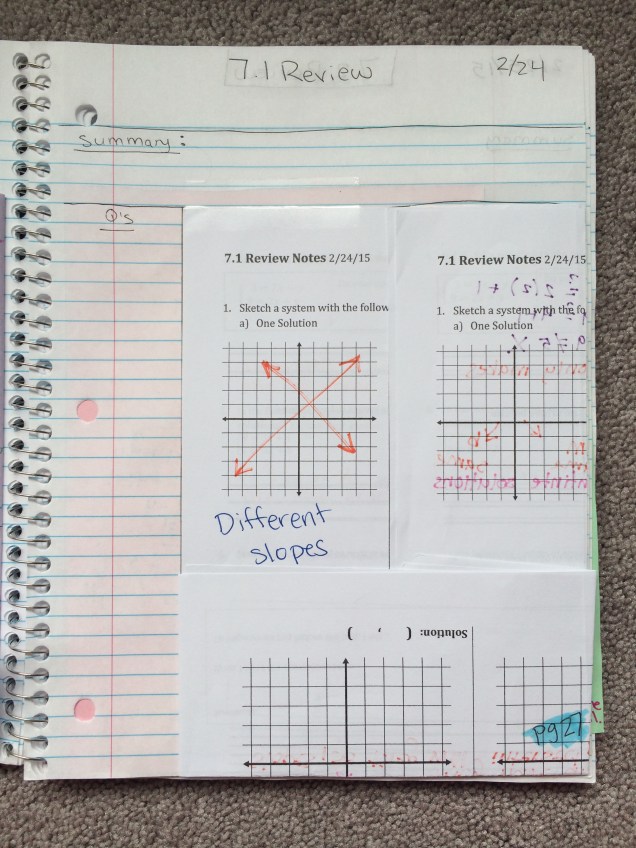 7.1 Review
2/24
Summary:
Q's
7.1 Review Notes 2/24/15
1. Sketch a system with the follow
a) One Solution
Different
slopes
7.1 Review Notes 2/24/15
2(2) + 1
1. Sketch a system with the fo
a) One Solution
only makes
same
infinite solutions
Solution: ( , )
pg 27